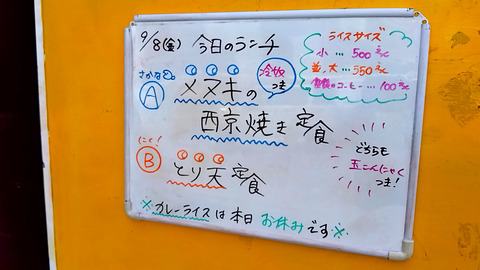 9/8(金) 今日のランチ
さかな
A メヌキの
冷奴
つき
西京焼き定食
にく!
B とり天定食
ライスサイズ
小…500
並、大…550
のコーヒー…100
どちらも
玉こんにゃく
つき!
※カレーライスは本日お休みです※